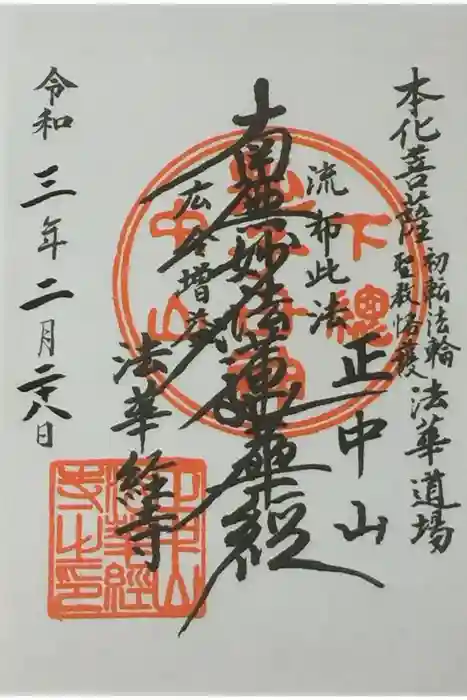 本化菩薩初転法輪聖教格護法華道場
正中山
流布此法
南無妙法蓮華経
広令増益
法華経寺
令和三年二月二十八日
正中山
法華経
寺之印